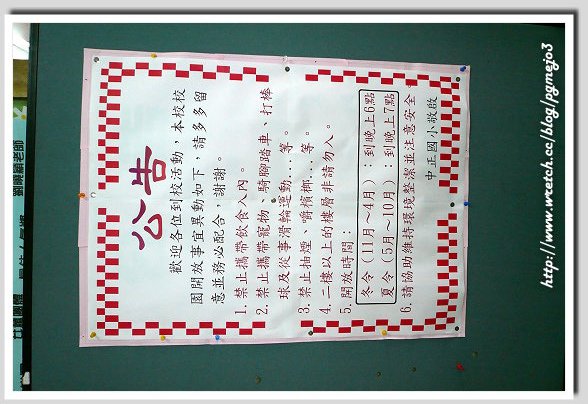 公告
歡迎各位到校活動，本校校
園開放事宜異動如下，請多多留
意並務必配合，謝謝。
1. 禁止攜帶飲食入內。
2. 禁止攜帶寵物、騎腳踏車、打棒
球及從事滑輪運動…等。
3. 禁止抽煙、嚼檳榔…等。
4. 二樓以上的樓層非請勿入。
5. 開放時間：
冬令（11月～4月）：到晚上6點
夏令（5月～10月）：到晚上7點
6. 請協助維持環境整潔並注意安全
中正國小敬啟
http://www.wretch.cc/blog/pgmejo3